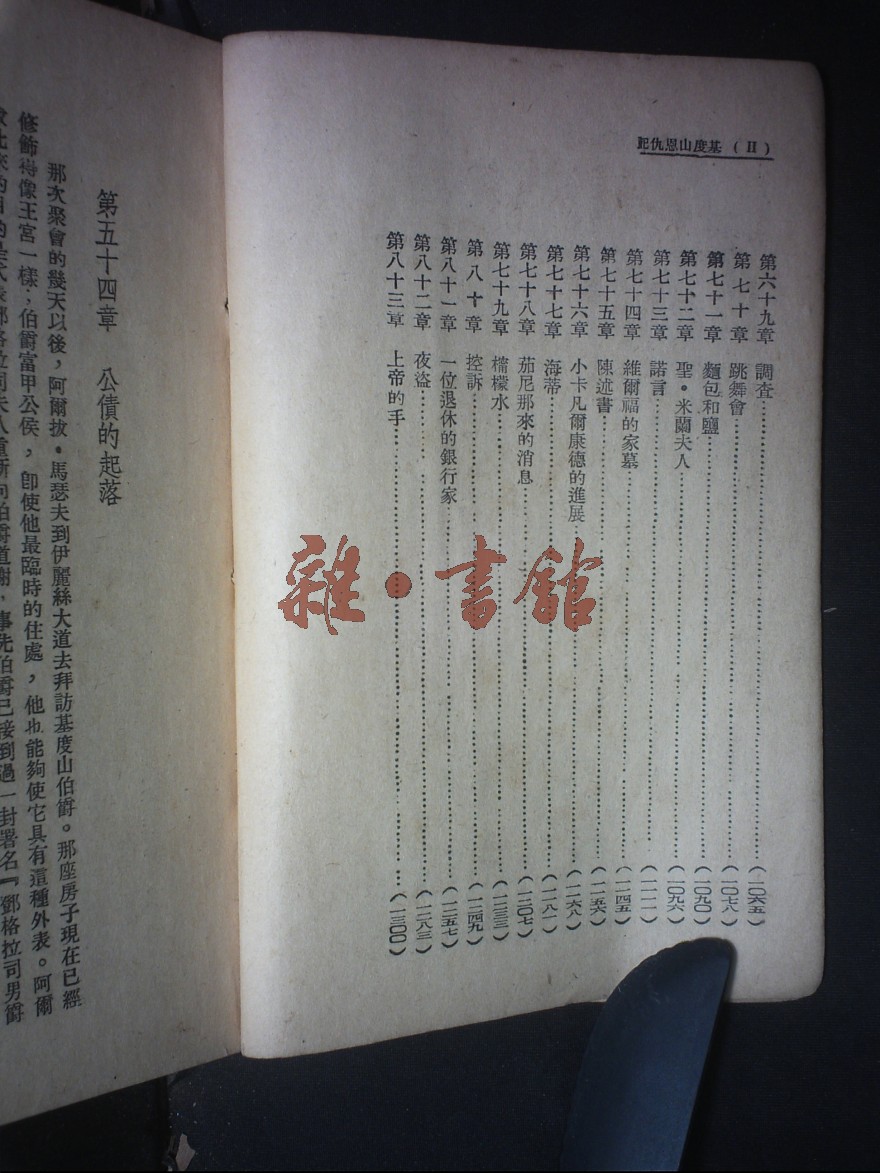 基度山恩仇記(II)
第六十九章 調査……(一〇六五)
第七十章 跳舞會……(一〇七八)
第七十一章 麵包和鹽……(一〇九〇)
第七十二章 聖・米蘭夫人……(一〇九六)
第七十三章 諾言……(一一一一)
第七十四章 維爾福的家墓……(一一四五)
第七十五章 陳述書……(一一五六)
第七十六章 小卡凡爾康德的進展……(一一六八)
第七十七章 海蒂……(一一八一)
第七十八章 茄尼那來的消息……(一二〇七)
第七十九章 檸檬水……(一二三三)
第八十章 控訴……(一二四九)
第八十一章 一位退休的銀行家……(一二五七)
第八十二章 夜盗……(一二八三)
第八十三章 上帝的手……(一三〇〇)
雜・書館
第五十四章 公債的起落
那次聚會的幾天以後,阿爾拔・馬瑟夫到伊麗絲大道去拜訪基度山伯爵。那座房子現在已經
修飾得像王宮一樣,伯爵富甲公侯,卽使他最臨時的住處,他也能夠使它具有這種外表。阿爾
重新向伯爵道謝,事先伯爵已接到過一封署名『鄧格拉司男爵